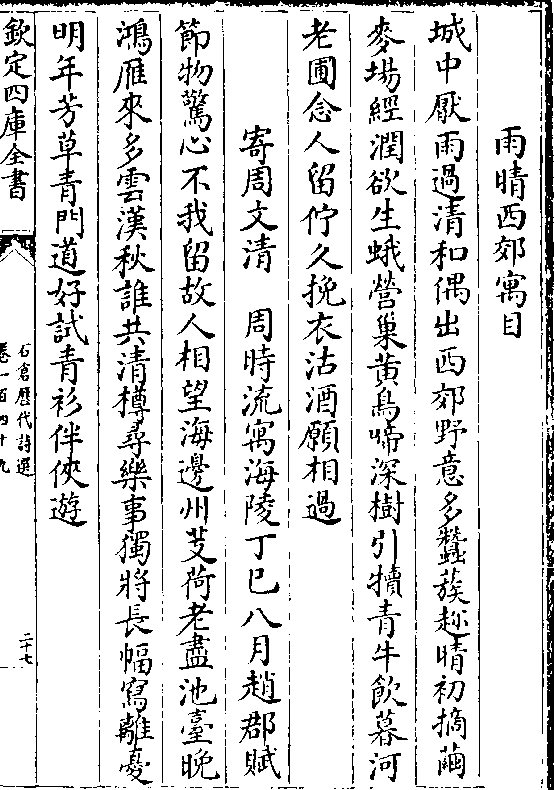 雨晴西郊寓目
城中厭雨過清和偶出西郊野意多蠶蔟趂晴初摘繭
麥場經潤欲生蛾營巢黄鳥啼深樹引犢青牛飲暮河
老圃念人留佇久挽衣沽酒願相過
寄周文清　周時流寓海陵丁巳八月趙郡賦
節物驚心不我留故人相望海邊州芰荷老盡池臺晚
鴻雁來多雲漢秋誰共清樽尋樂事獨將長幅寫離憂
明年芳草青門道好試青衫伴俠遊
欽定四庫全書
石倉歷代詩選
卷一百四十九
二十七